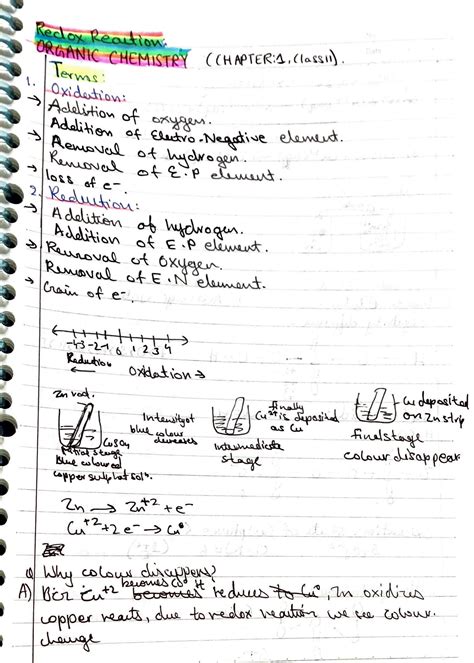 Redox Reaction:
ORGANIC CHEMISTRY (CHAPTER:1, Class11).
Terms:
1. Oxidation:
→ Addition of oxygen.
Addition of Electro-Negative element.
→ Removal of hydrogen.
Removal of E.P element.
→ loss of e-.
2. Reduction:
→ Addition of hydrogen.
Addition of E.P element.
→ Removal of Oxygen.
Removal of E.N element.
→ Gain of e-.
-4-3-2-1 0 1 2 3 4
Reduction
Oxidation →
Zn rod.
CuSO4
Initial stage
Blue coloured
copper sulphat sol.
Intensity of
blue colour
decreases
finally
Cu+2 is deposited
as Cu
Intermediate
stage
Cu deposited
on Zn strip
final stage
colour disappear
Zn → Zn+2 + e-
Cu+2 + 2e- → Cu0
Q Why colour disappers?
A) Bcz Cu+2 becomes reduces to Cu0, Zn oxidizes
copper reacts, due to redox reaction we see colour
change